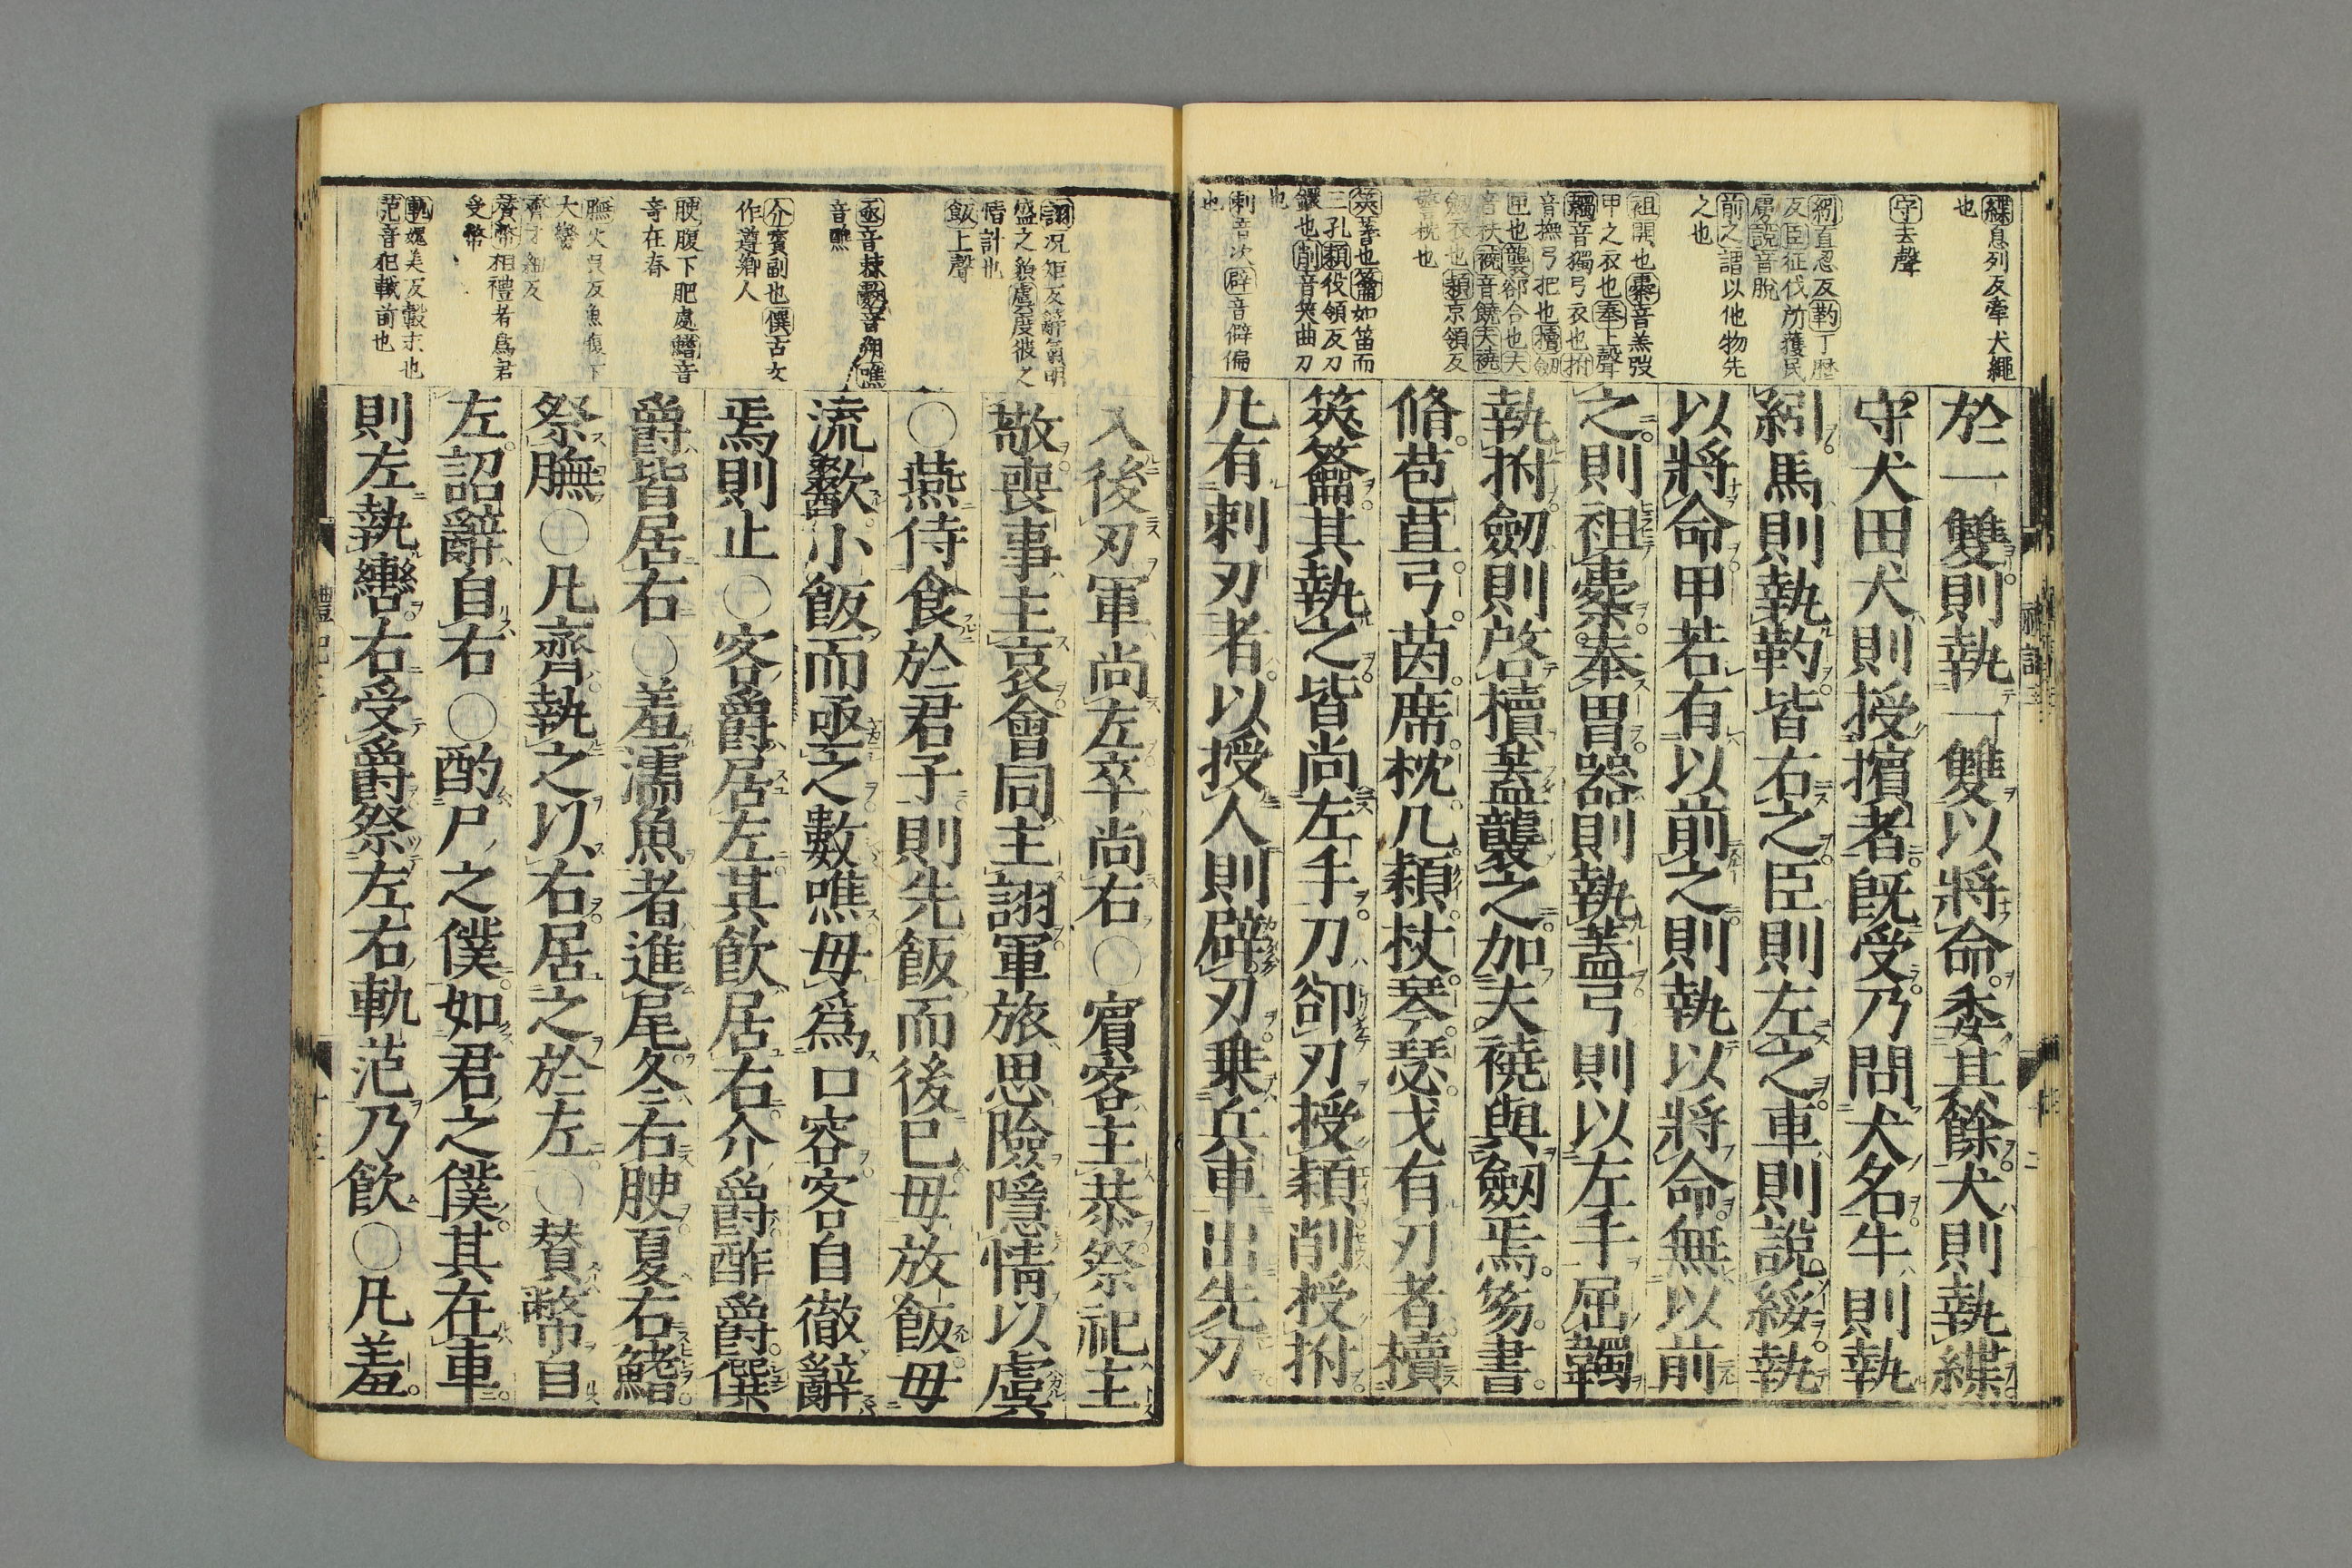 緤息列反牽犬繩
也
守去聲
紖直忍反靮丁歷
反臣征伐所獲民
虜說音脫
前之謂以他物先
之也
袒開也櫜音羔弢
甲之衣也奉上聲
韣音獨弓衣也拊
音撫弓把也櫝劒
匣也襲郤合也夫
音扶襓音饒夫襓
劒衣也熲京領反
警枕也
筴蓍也籥如笛而
三孔穎役領反刀
鐶也削音笑曲刀
也
刺音次辟音僻偏
也
於一雙則執一雙以將命委其餘犬則執緤
守犬田犬則授擯者既受乃問犬名牛則執
紖馬則執靮皆右之臣則左之車則說綏執
以將命甲若有以前之則執以將命無以前
之則袒櫜奉冑器則執蓋弓則以左手屈韣
執拊劒則啓櫝蓋襲之加夫襓與劒焉笏書
脩苞苴弓茵席枕几熲杖琴瑟戈有刃者櫝
筴籥其執之皆尚左手刀卻刃授穎削授拊
凡有刺刃者以授人則辟刃乗兵車出先刃
詡况矩反辭氣明
盛之貌虞度彼之
情計也
飯上聲
亟音棘數音朔噍
音醮
介賓副也僎古文
作遵鄉人
腴腹下肥處鰭音
竒在脊
膴火呉反魚腹下
大臠
齊才細反
賛幣相禮者爲君
受幣
軌媿美反轂末也
范音犯軾前也
入後刃軍尚左卒尚右○賓客主恭祭祀主
敬喪事主哀會同主詡軍旅思險隱情以虞
○燕侍食於君子則先飯而後已毋放飯毋
流歠小飯而亟之數噍毋爲口容客自徹辭
焉則止○客爵居左其飮居右介爵酢爵僎
爵皆居右○羞濡魚者進尾冬右腴夏右鰭
祭膴○凡齊執之以右居之於左○賛幣自
左詔辭自右○酌尸之僕如君之僕其在車
則左執轡右受爵祭左右軌范乃飮○凡羞
禮記三
十三